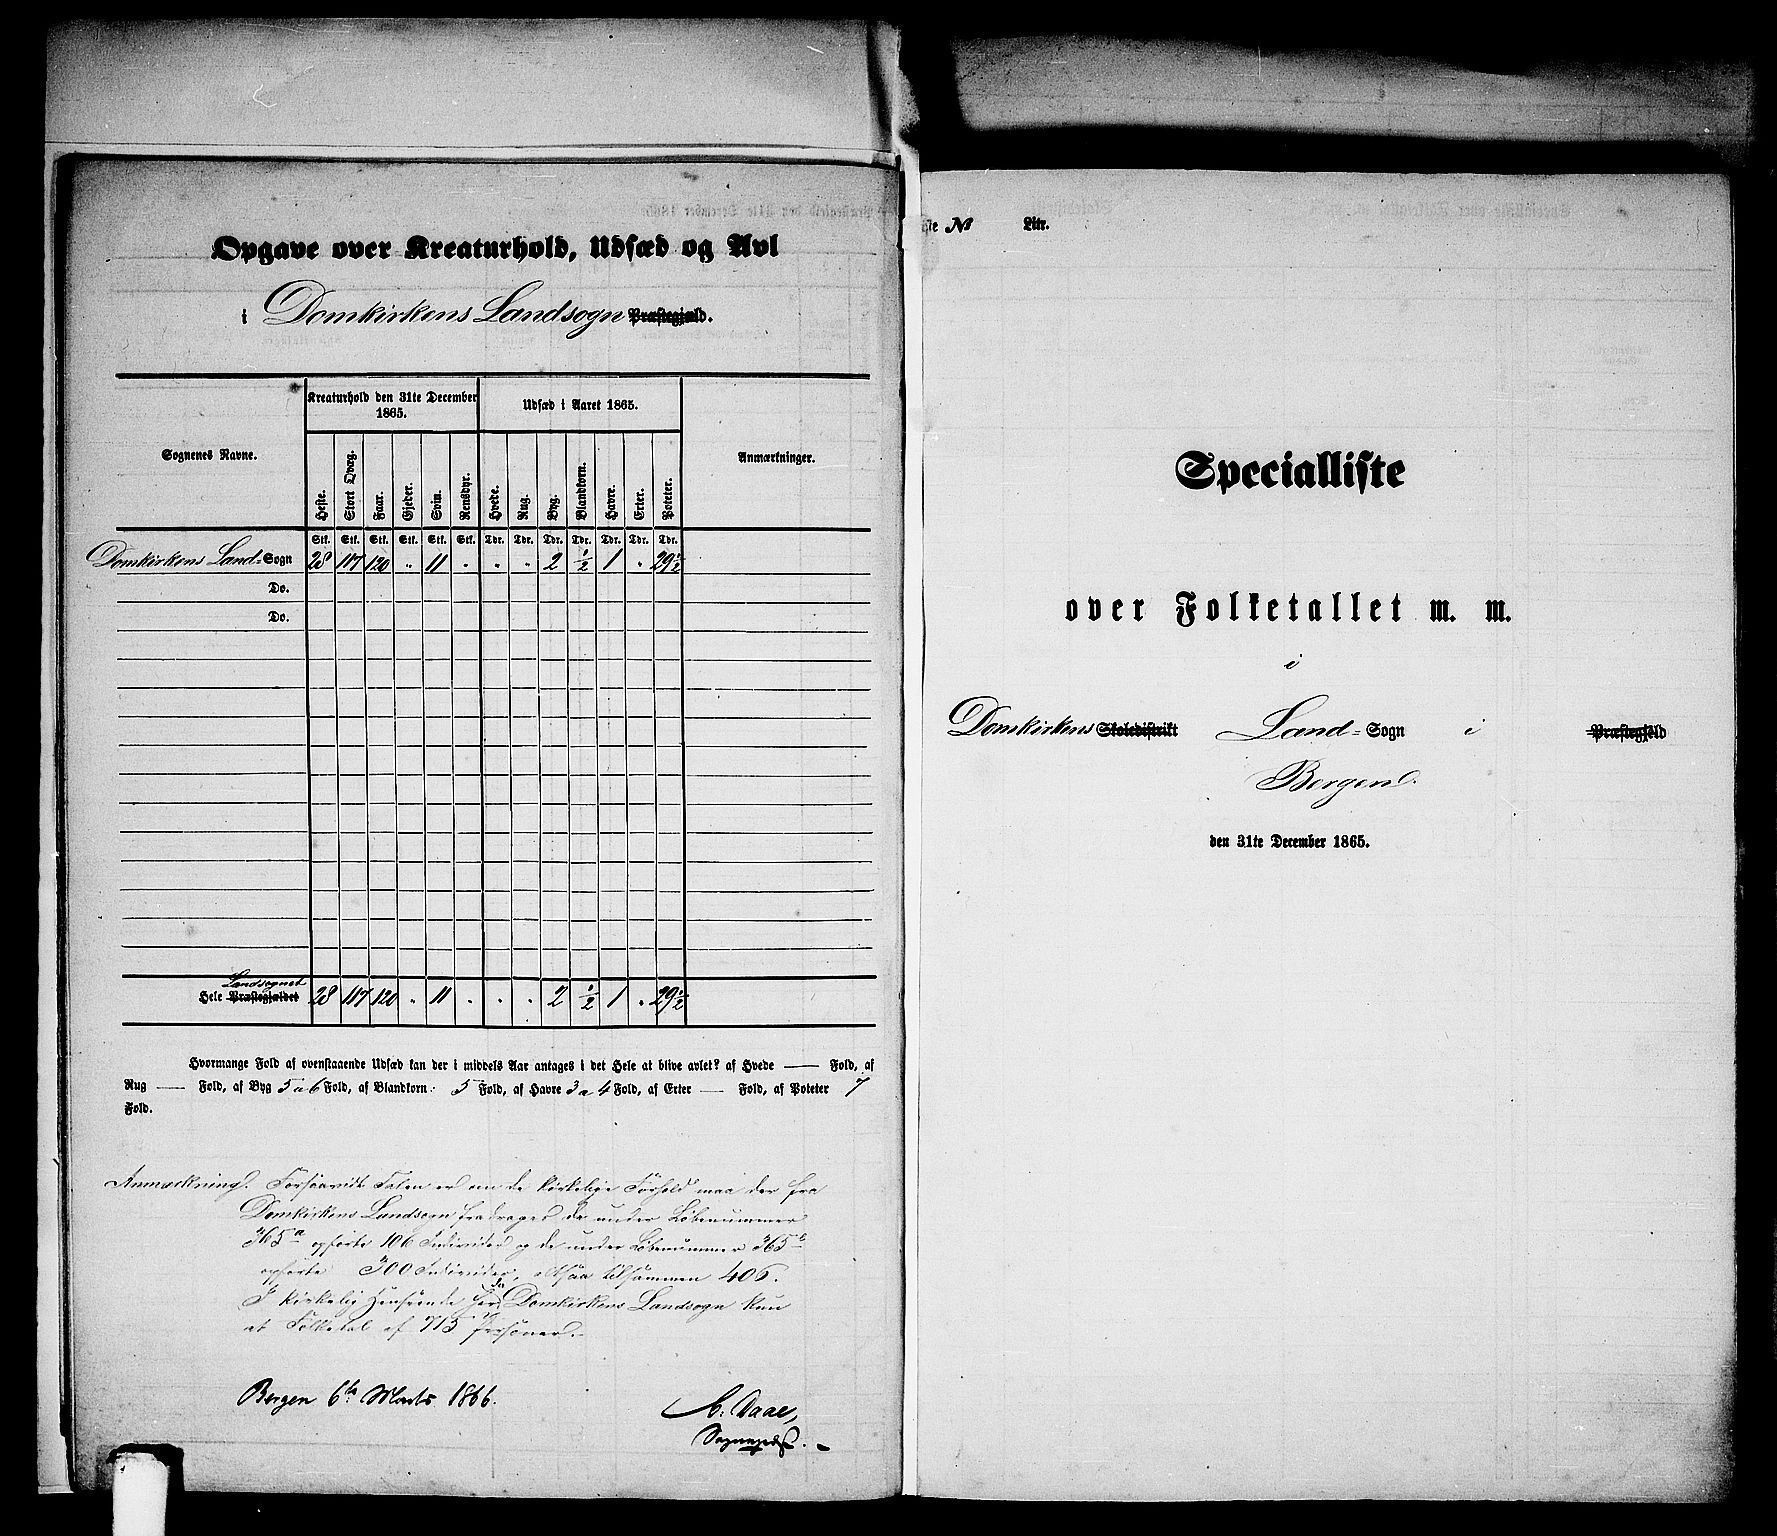 Opgave over Kreaturhold, Udsæd og Avl
i Domkirkens Landsogn Præstegjæld.
Sognenes Navne.
Kreaturhold den 31te December 1865.
Udsæd i Aaret 1865.
Anmærkninger.
Heste. Stort Qvæg. Faar. Gjeder. Svin. Rensdyr. Hvede. Rug. Byg. Blandkorn. Havre. Erter. Poteter.
Stk. Stk. Stk. Stk. Stk. Stk. Tdr. Tdr. Tdr. Tdr. Tdr. Tdr. Tdr.
Domkirkens Land- Sogn 28 117 120 " 11 " " " 2 ½ 1 " 29½
Do.
Do.
Landsognet
Hele Præstegjældet 28 117 120 " 11 " " " 2 ½ 1 " 29½
Hvormange Fold af ovenstaaende Udsæd kan der i middels Aar antages i det Hele at blive avlet? af Hvede — Fold, af
Rug — Fold, af Byg 5 a 6 Fold, af Blandkorn 5 Fold, af Havre 3 a 4 Fold, af Erter — Fold, af Poteter 7
Fold.
Anmærkning. Forsaavidt Talen er om de kirkelige Forhold maa der fra
Domkirkens Landsogn fradrages de under Løbenummer
365a opførte 106 Individer og de under Løbenummer 365b
opførte 300 Individer, altsaa tilsammen 406.
I kirkelig Henseende har da Domkirkens Landsogn kun
et Folketal af 715 Personer.
Bergen 6te Marts 1866.
C. Daae,
Sognepræst.
ste No Litr.
Specialliste
over Folketallet m. m.
i
Domkirkens Skoledistrikt Land- Sogn i Præstegjeld
Bergen.
den 31te December 1865.